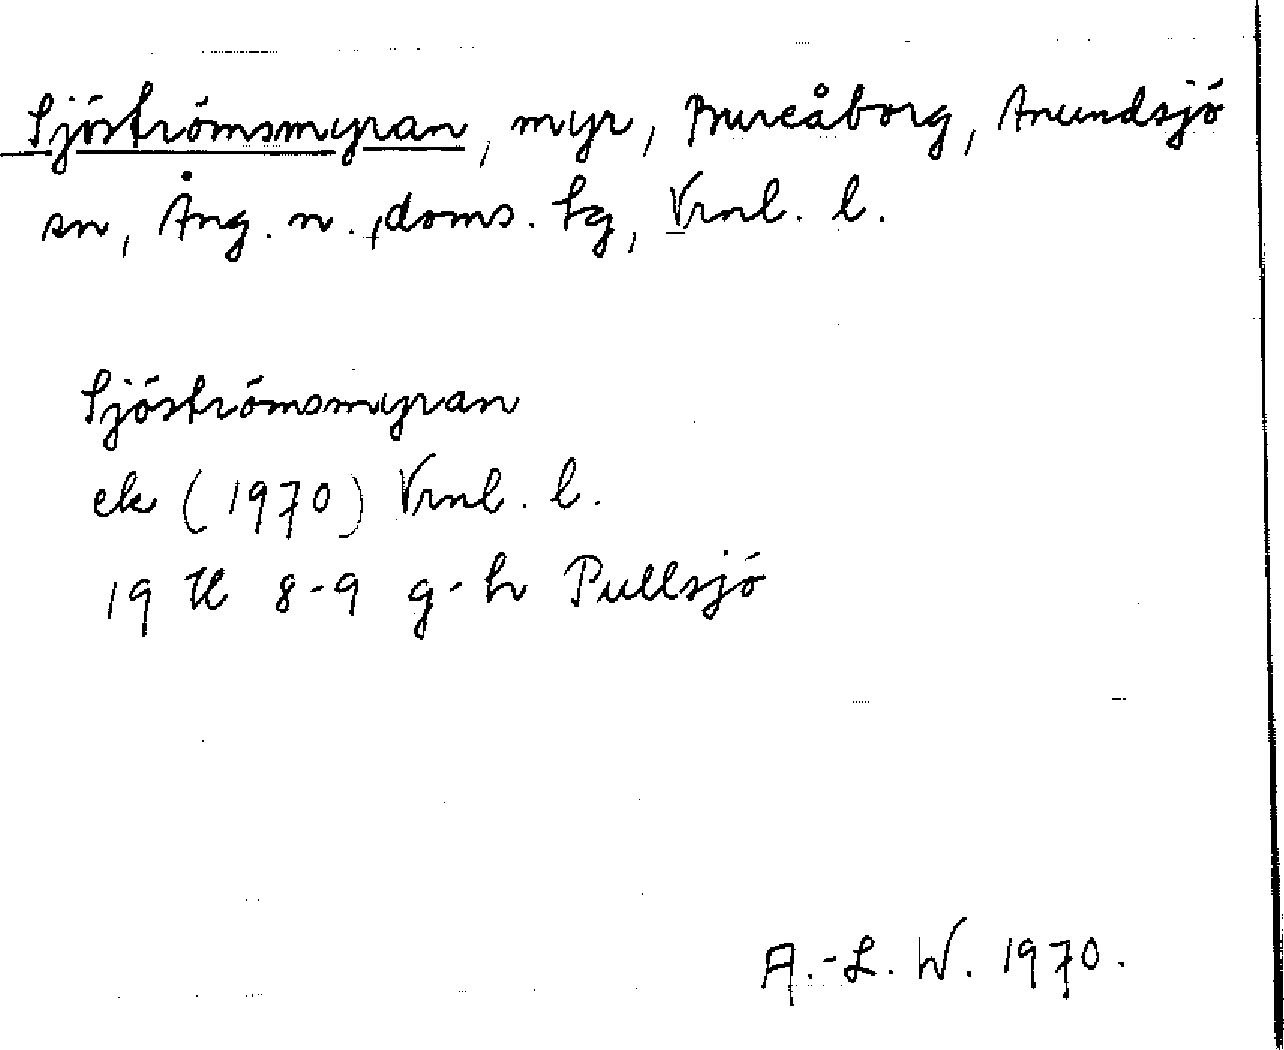 Sjöströmsmyran, myr, Bureåborg, Anundsjö
sn, Ång. n., doms. hg, Vrnl. l.
Sjöströmsmyran
ek (1970) Vrnl. l.
19 H 8-9 g-h Pullsjö
A.-L. W. 1970.